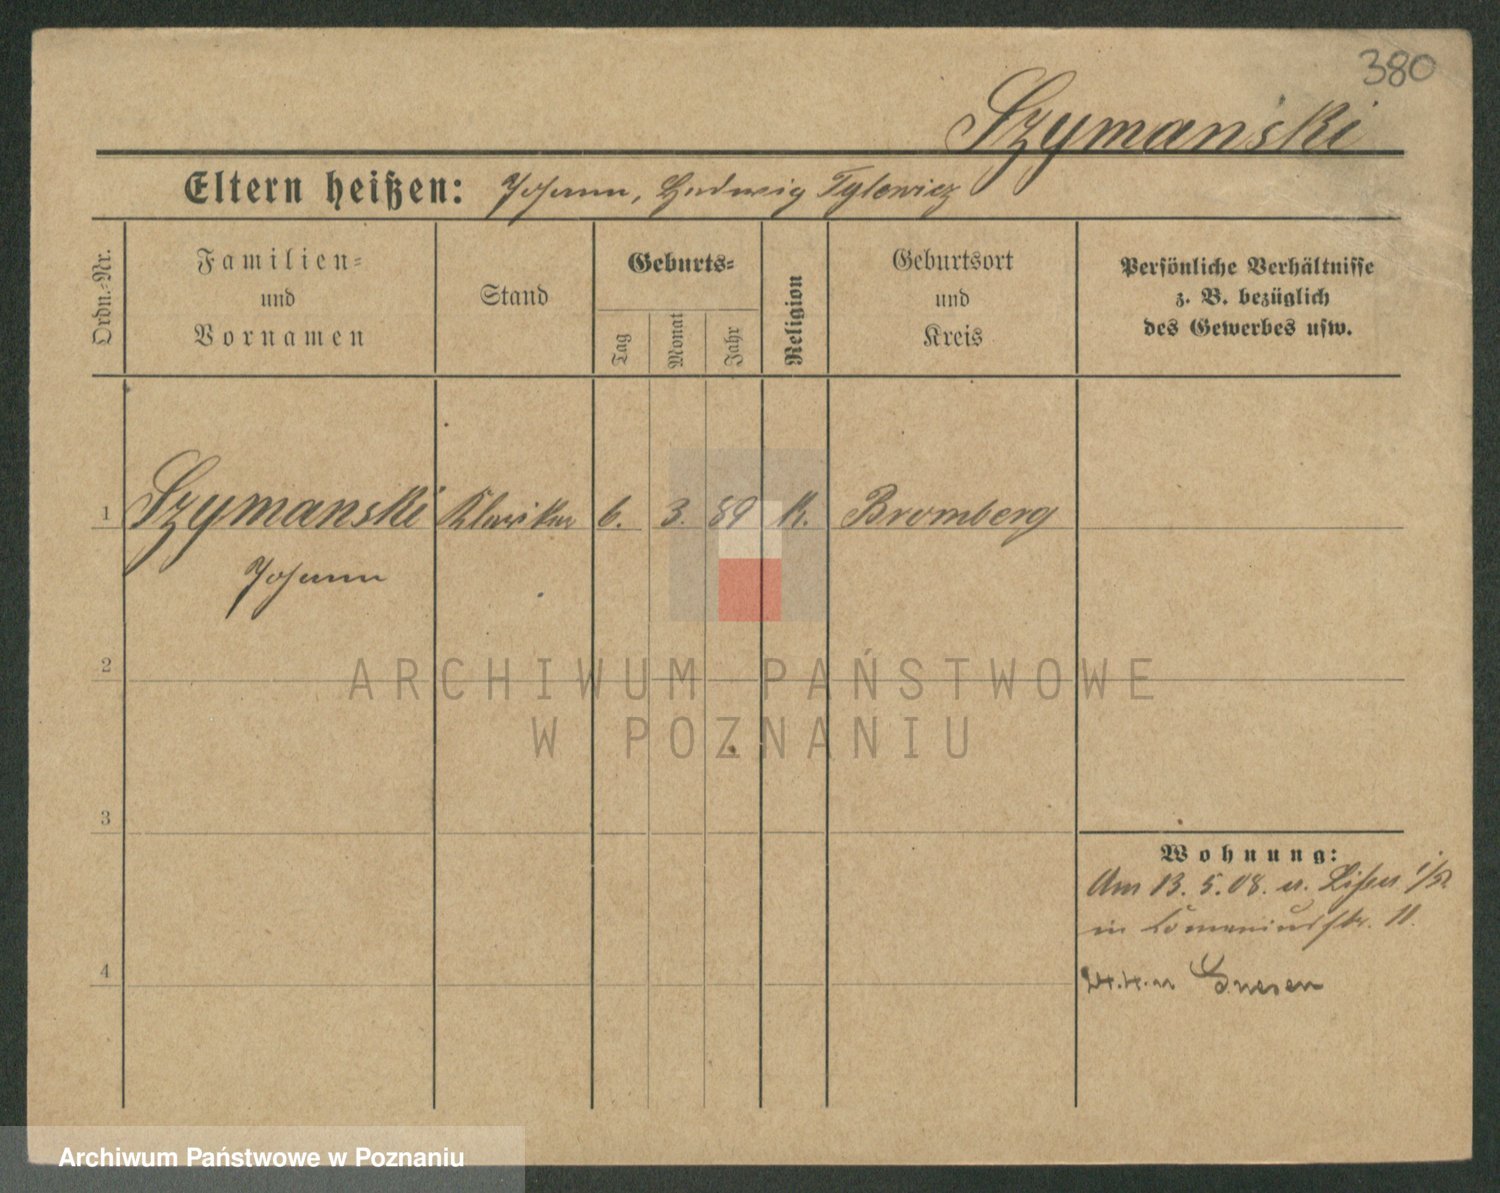 380
Szymański
Eltern heißen: Johann, Hedwig Tylewicz
Ordn.-Nr.
Familien-
und
Vornamen
Stand
Geburts-
Tag
Monat
Jahr
Religion
Geburtsort
und
Kreis
Persönliche Verhältnisse
z. B. bezüglich
des Gewerbes usw.
1 Szymanski Kleriker 6. 3. 89 K. Bromberg
Johann
2
ARCHIWUM PAŃSTWOWE
W POZNANIU
3
Wohnung:
Am 13. 5. 08. Lissa
in Comeniusstr. 11.
4
Gnesen
Archiwum Państwowe w Poznaniu